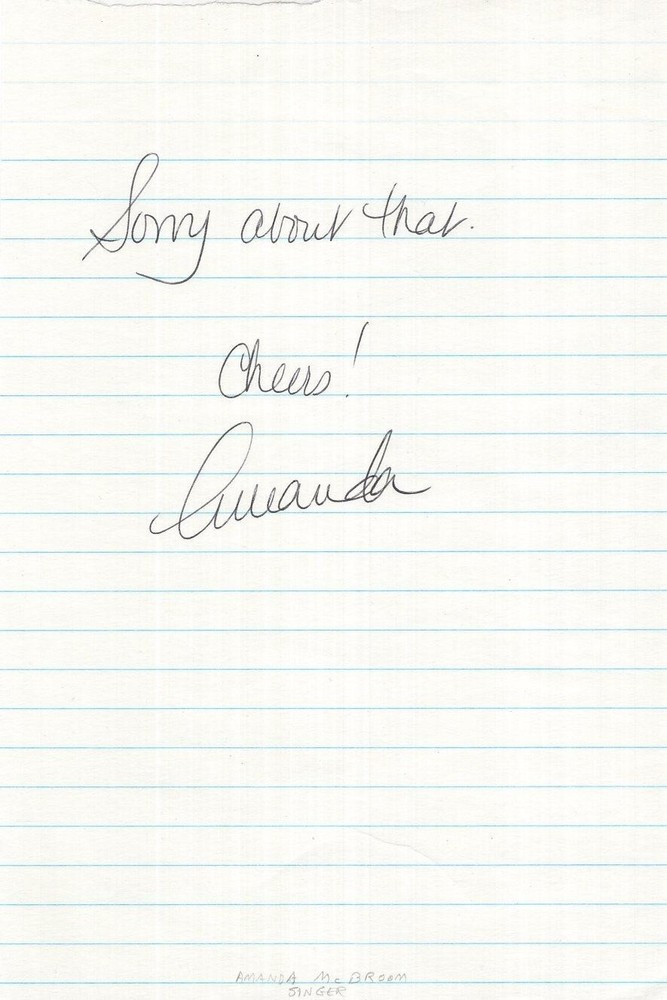 Sorry about that.
Cheers!
Amanda
AMANDA McBROOM
SINGER